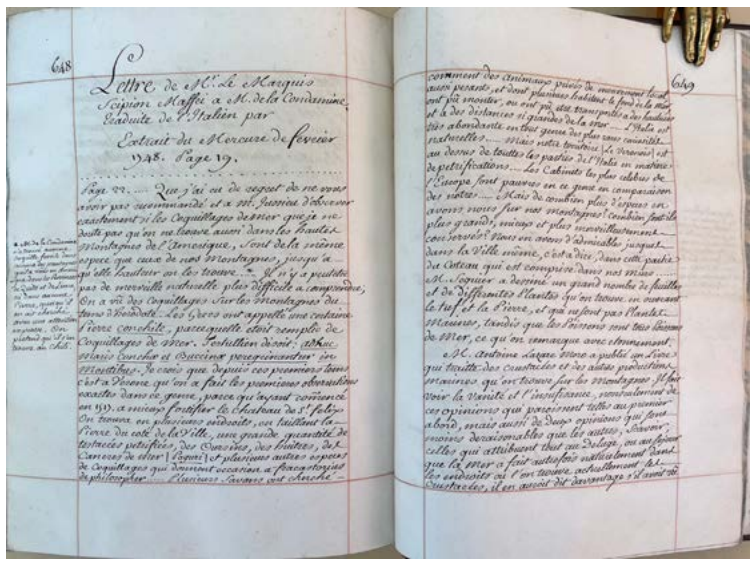 648
Lettre de Mr. Le Marquis
Scipion Maffei a M. de la Condamine,
traduite de l'Italien par
Extrait du Mercure de fevrier
1748. Page 19.
Page 22..... Que j'ai eu de regret de ne vous
avoir pas recommandé et a M. Jussieu d'observer
exactement si les Coquillages de Mer que je ne
doute pas qu'on ne trouve aussi dans les hautes
Montagnes de l'Amerique, sont de la même
espece que ceux de nos Montagnes, jusqu'a
qu'elle hauteur on les trouve. Il n'y a peutêtre
pas de merveille naturelle plus difficile a comprendre;
On a vû des Coquillages sur les Montagnes du
tems d'herodote. Les Grecs ont appellé une certaine
Pierre conchite, parcequ'elle etoit remplie de
Coquillages de Mer. Tertullien disoit: adhuc
maris Conchæ et Buccinæ peregrinantur in
Montibus. Je crois que depuis ces premiers tems
c'est a Verone qu'on a fait les premieres observations
exactes dans ce genre, parce qu'ayant comencé
en 1517, a mieux fortifier le chateau de St. felix
On trouva en plusieurs endroits, en taillant la
Pierre du coté de la Ville, une grande quantité de
testacés petrifiées, des Oursins, des huitres, des
Cancres de Mer | Paguri | et plusieurs autres especes
de Coquillages qui donnent occasion a fracastorius
de philosopher..... Plusieurs Savans ont cherché
a M. de la Condamine
649
comment des Animaux privés de mouvement local,
aussi pesants, et dont plusieurs habitent le fond de la Mer
ont pû monter, ou ont pû etre transportés a des hauteurs
et a des distances si grandes de la mer.... L'Italie est
très abondante en tout genre des plus rares curiosités
naturelles..... Mais notre territoire | Le Veronois | est
au dessus de toutes les parties de l'Italie en matiere
de petrifications.... Les Cabinets les plus celebres de
l'Europe sont pauvres en ce genre en comparaison
des notres.... Mais de combien plus d'especes en
avons nous sur nos montagnes! Combien sont ils
plus grands, mieux et plus merveilleusement
conservés! Nous en avons d'admirables jusques
dans la Ville même, c'est a dire, dans cette partie
du Coteau qui est comprise dans nos murs.....
M. Seguier a dessiné un grand nombre de feuilles
et de differentes Plantes qu'on trouve en ouvrant
le tuf et la Pierre, et qui ne sont pas Plantes
Marines, tandis que les Poissons sont tres Poissons
de Mer, ce qu'on remarque avec etonnement.
M. Antoine Lazare Moro a publié un Livre
qui traitte des crustacées et des autres productions
marines qu'on trouve sur les Montagnes. Il fait
voir la vanité et l'insufisance, nonseulement de
ces opinions que paroissent telles au premier
abord, mais aussi de deux opinions qui sont
moins deraisonables que les autres, Savoir,
celles qui attribuent tout au Deluge, ou au sejour
que la Mer a fait autrefois naturelement dans
les endroits où l'on trouve actuellement les
Crustacées, il en auroit dit davantage s'il avoit vû